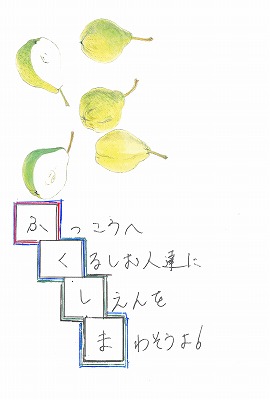 ふっこうへ
くるしむ人達に
しえんを
まわそうよ！